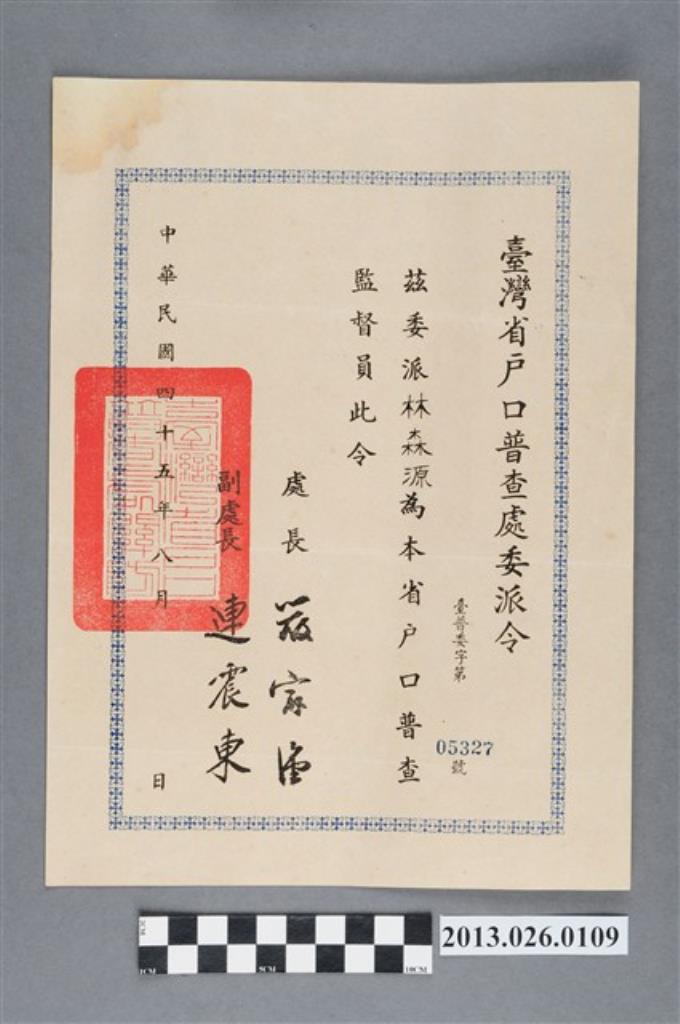 臺灣省戶口普查處委派令
臺普委字第
05327
號
茲委派林森源為本省戶口普查
監督員此令
處長 嚴家淦
副處長 連震東
中華民國四十五年八月 日
1CM 5CM 10CM
2013.026.0109